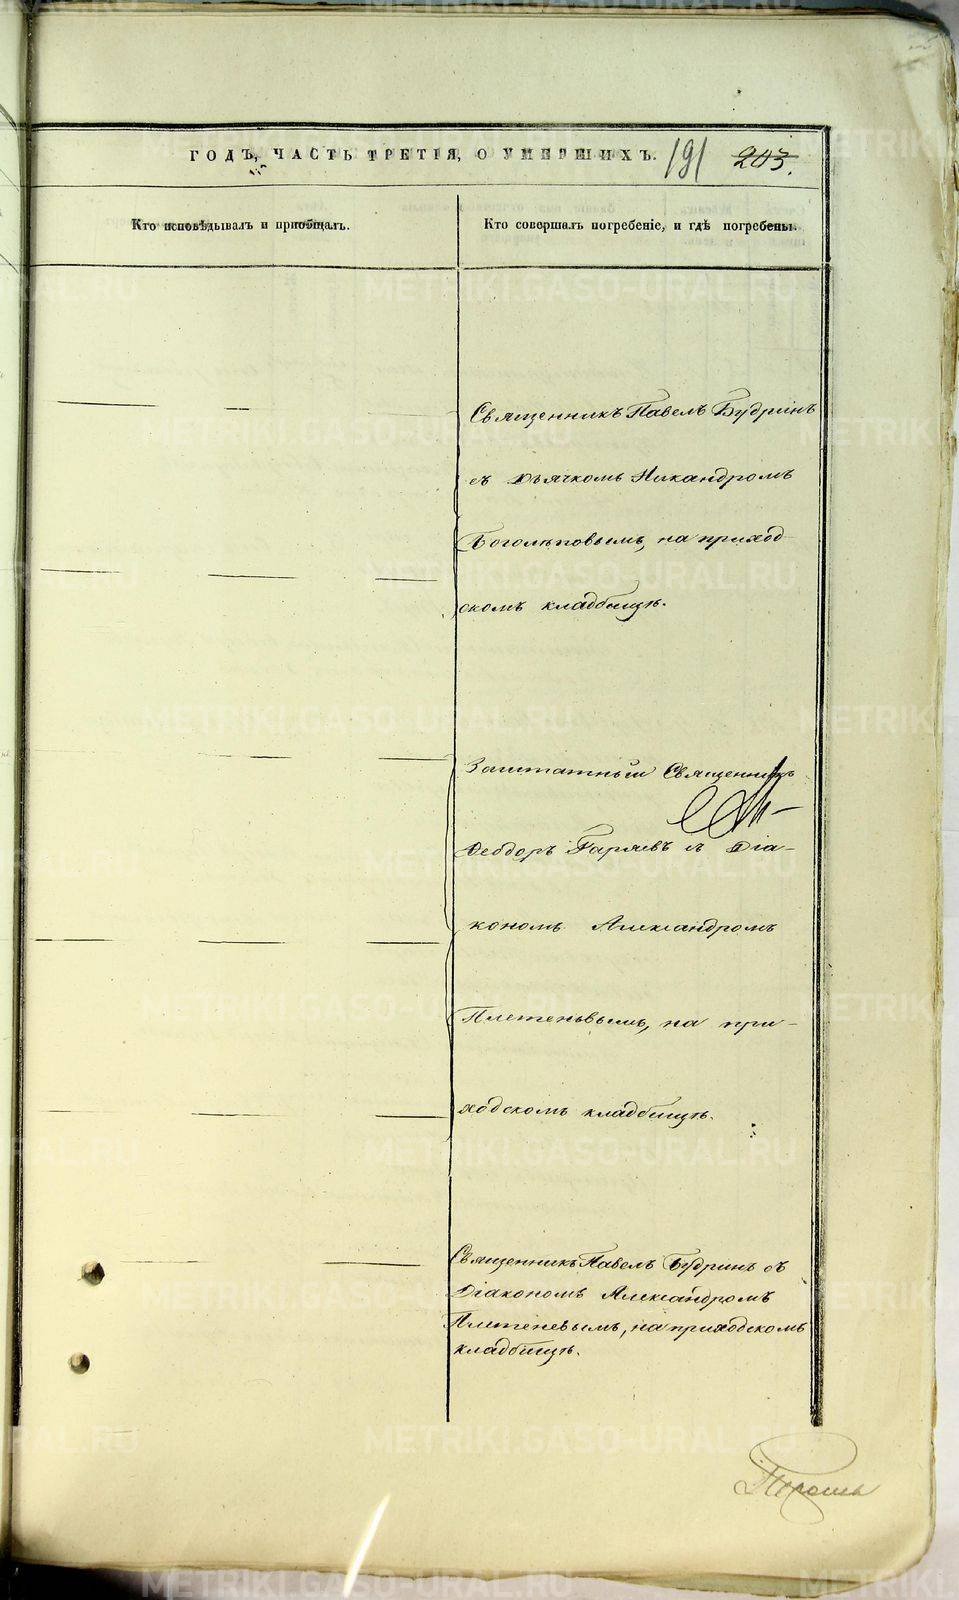 ГОДЪ, ЧАСТЬ ТРЕТІЯ, О УМЕРШИХЪ. 191 203.
Кто исповѣдывалъ и пріобщалъ.
Кто совершалъ погребеніе, и гдѣ погребены.
Священникъ Павелъ Будринъ
съ Дьячкомъ Никандромъ
Боголѣповымъ, на приход-
скомъ кладбищѣ.
Заштатный Священникъ
Феодоръ Гаряевъ съ Діа-
кономъ Александромъ
Плетеневымъ, на при-
ходскомъ кладбищѣ.
Священникъ Павелъ Будринъ съ
Діакономъ Александромъ
Плетеневымъ, на приходскомъ
кладбищѣ.
METRIKI.GASO-URAL.RU